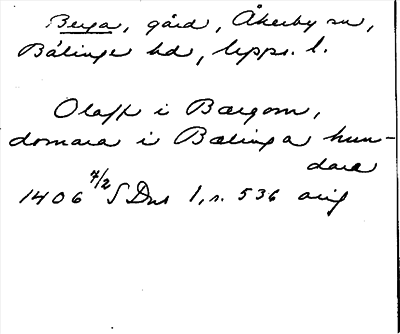 Berga, gård, Åkerby sn,
Bälinge hd, Upps. l.
Olaff i Bærgom,
domara i Bælinga hun-
dare
1406 4/2 SDns 1, s. 536 orig